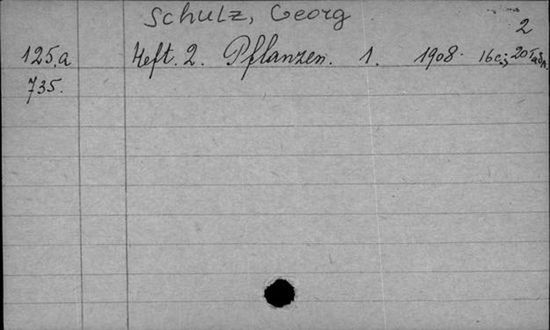 Schulz, Georg
2
125.a Heft. 2. Pflanzen. 1. 1908. 16
735.